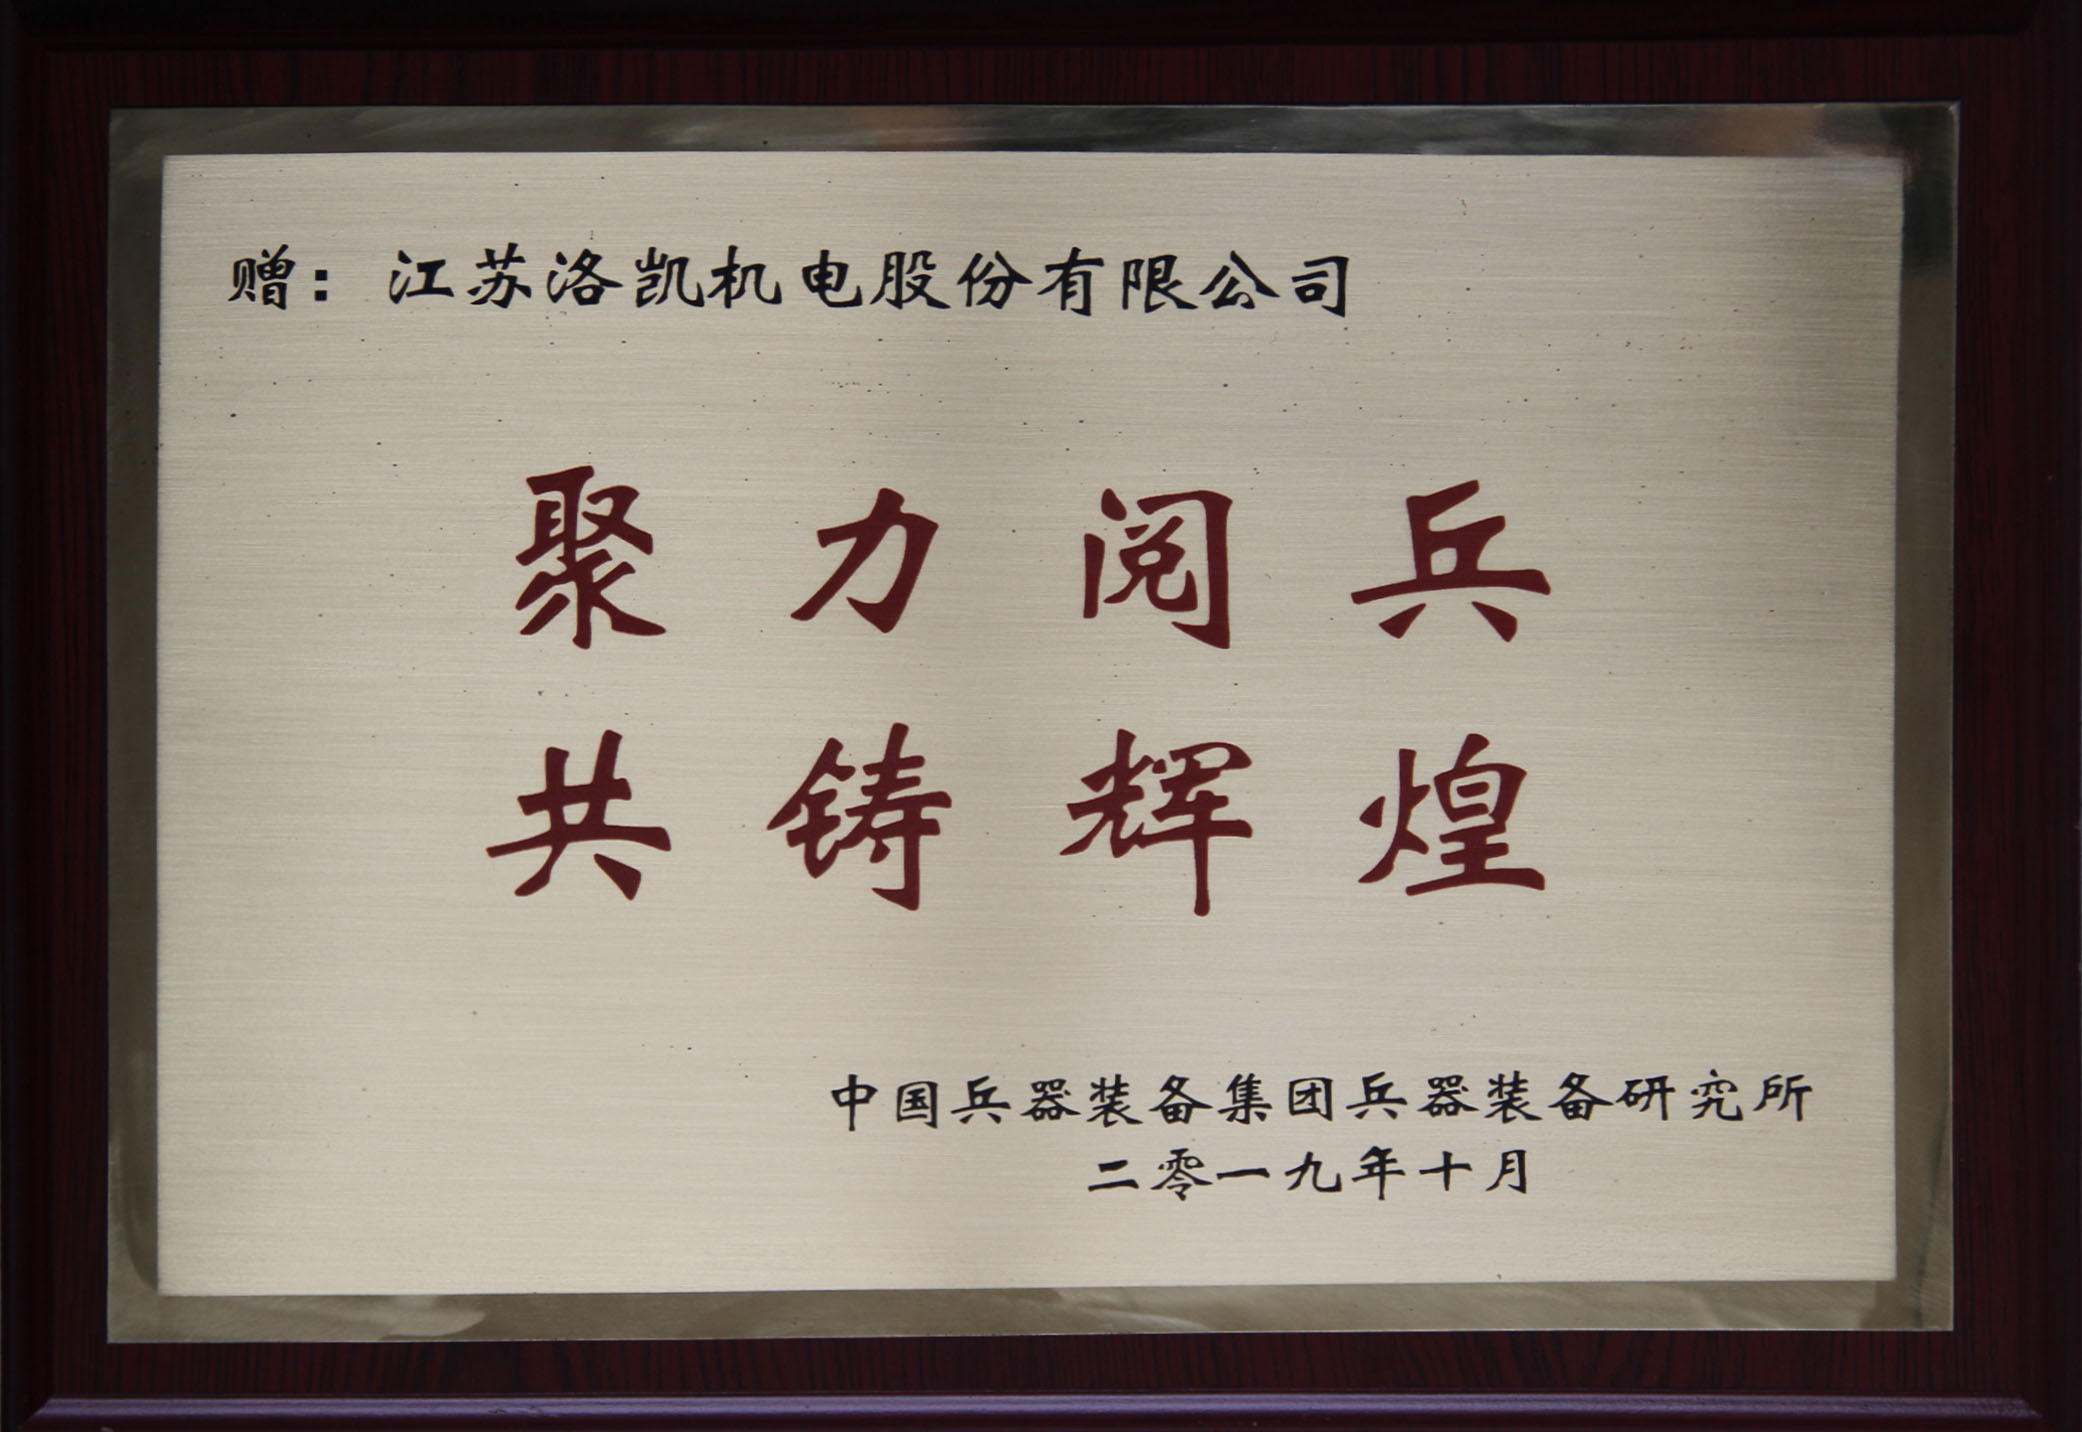 赠：江苏洛凯机电股份有限公司
聚力阅兵
共铸辉煌
中国兵器装备集团兵器装备研究所
二零一九年十月